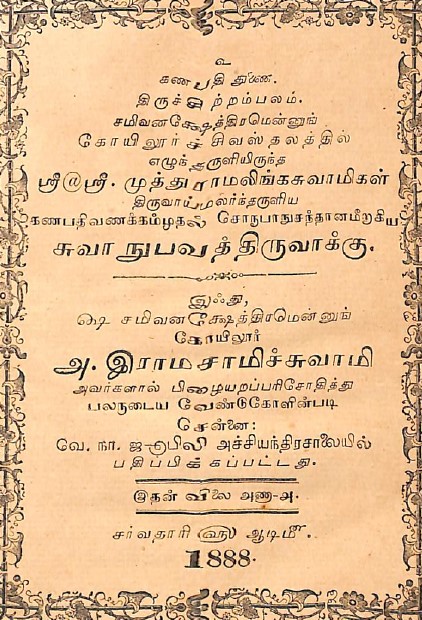 உ
கணபதி துணை.
திருச்சிற்றம்பலம்.
சமிவனக்ஷேத்திரமென்னுங்
கோயிலூர்ச் சிவஸ்தலத்தில்
எழுந்தருளியிருந்த
ஸ்ரீலஸ்ரீ. முத்துராமலிங்கசுவாமிகள்
திருவாய்மலர்ந்தருளிய
கணபதிவணக்கம்முதல் சோநுபாநுசந்தானமீறாகிய
சுவாநுபவத்திருவாக்கு.
இஃது,
ஷை சமிவனக்ஷேத்திரமென்னுங்
கோயிலூர்
அ. இராமசாமிச்சுவாமி
அவர்களால் பிழையறப்பரிசோதித்து
பலருடைய வேண்டுகோளின்படி
சென்னை:
வே. நா. ஜூபிலி அச்சியந்திரசாலையில்
பதிப்பிக்கப்பட்டது.
இதன் விலை அணா-அ.
சர்வதாரி ௵ ஆடி௴.
1888.